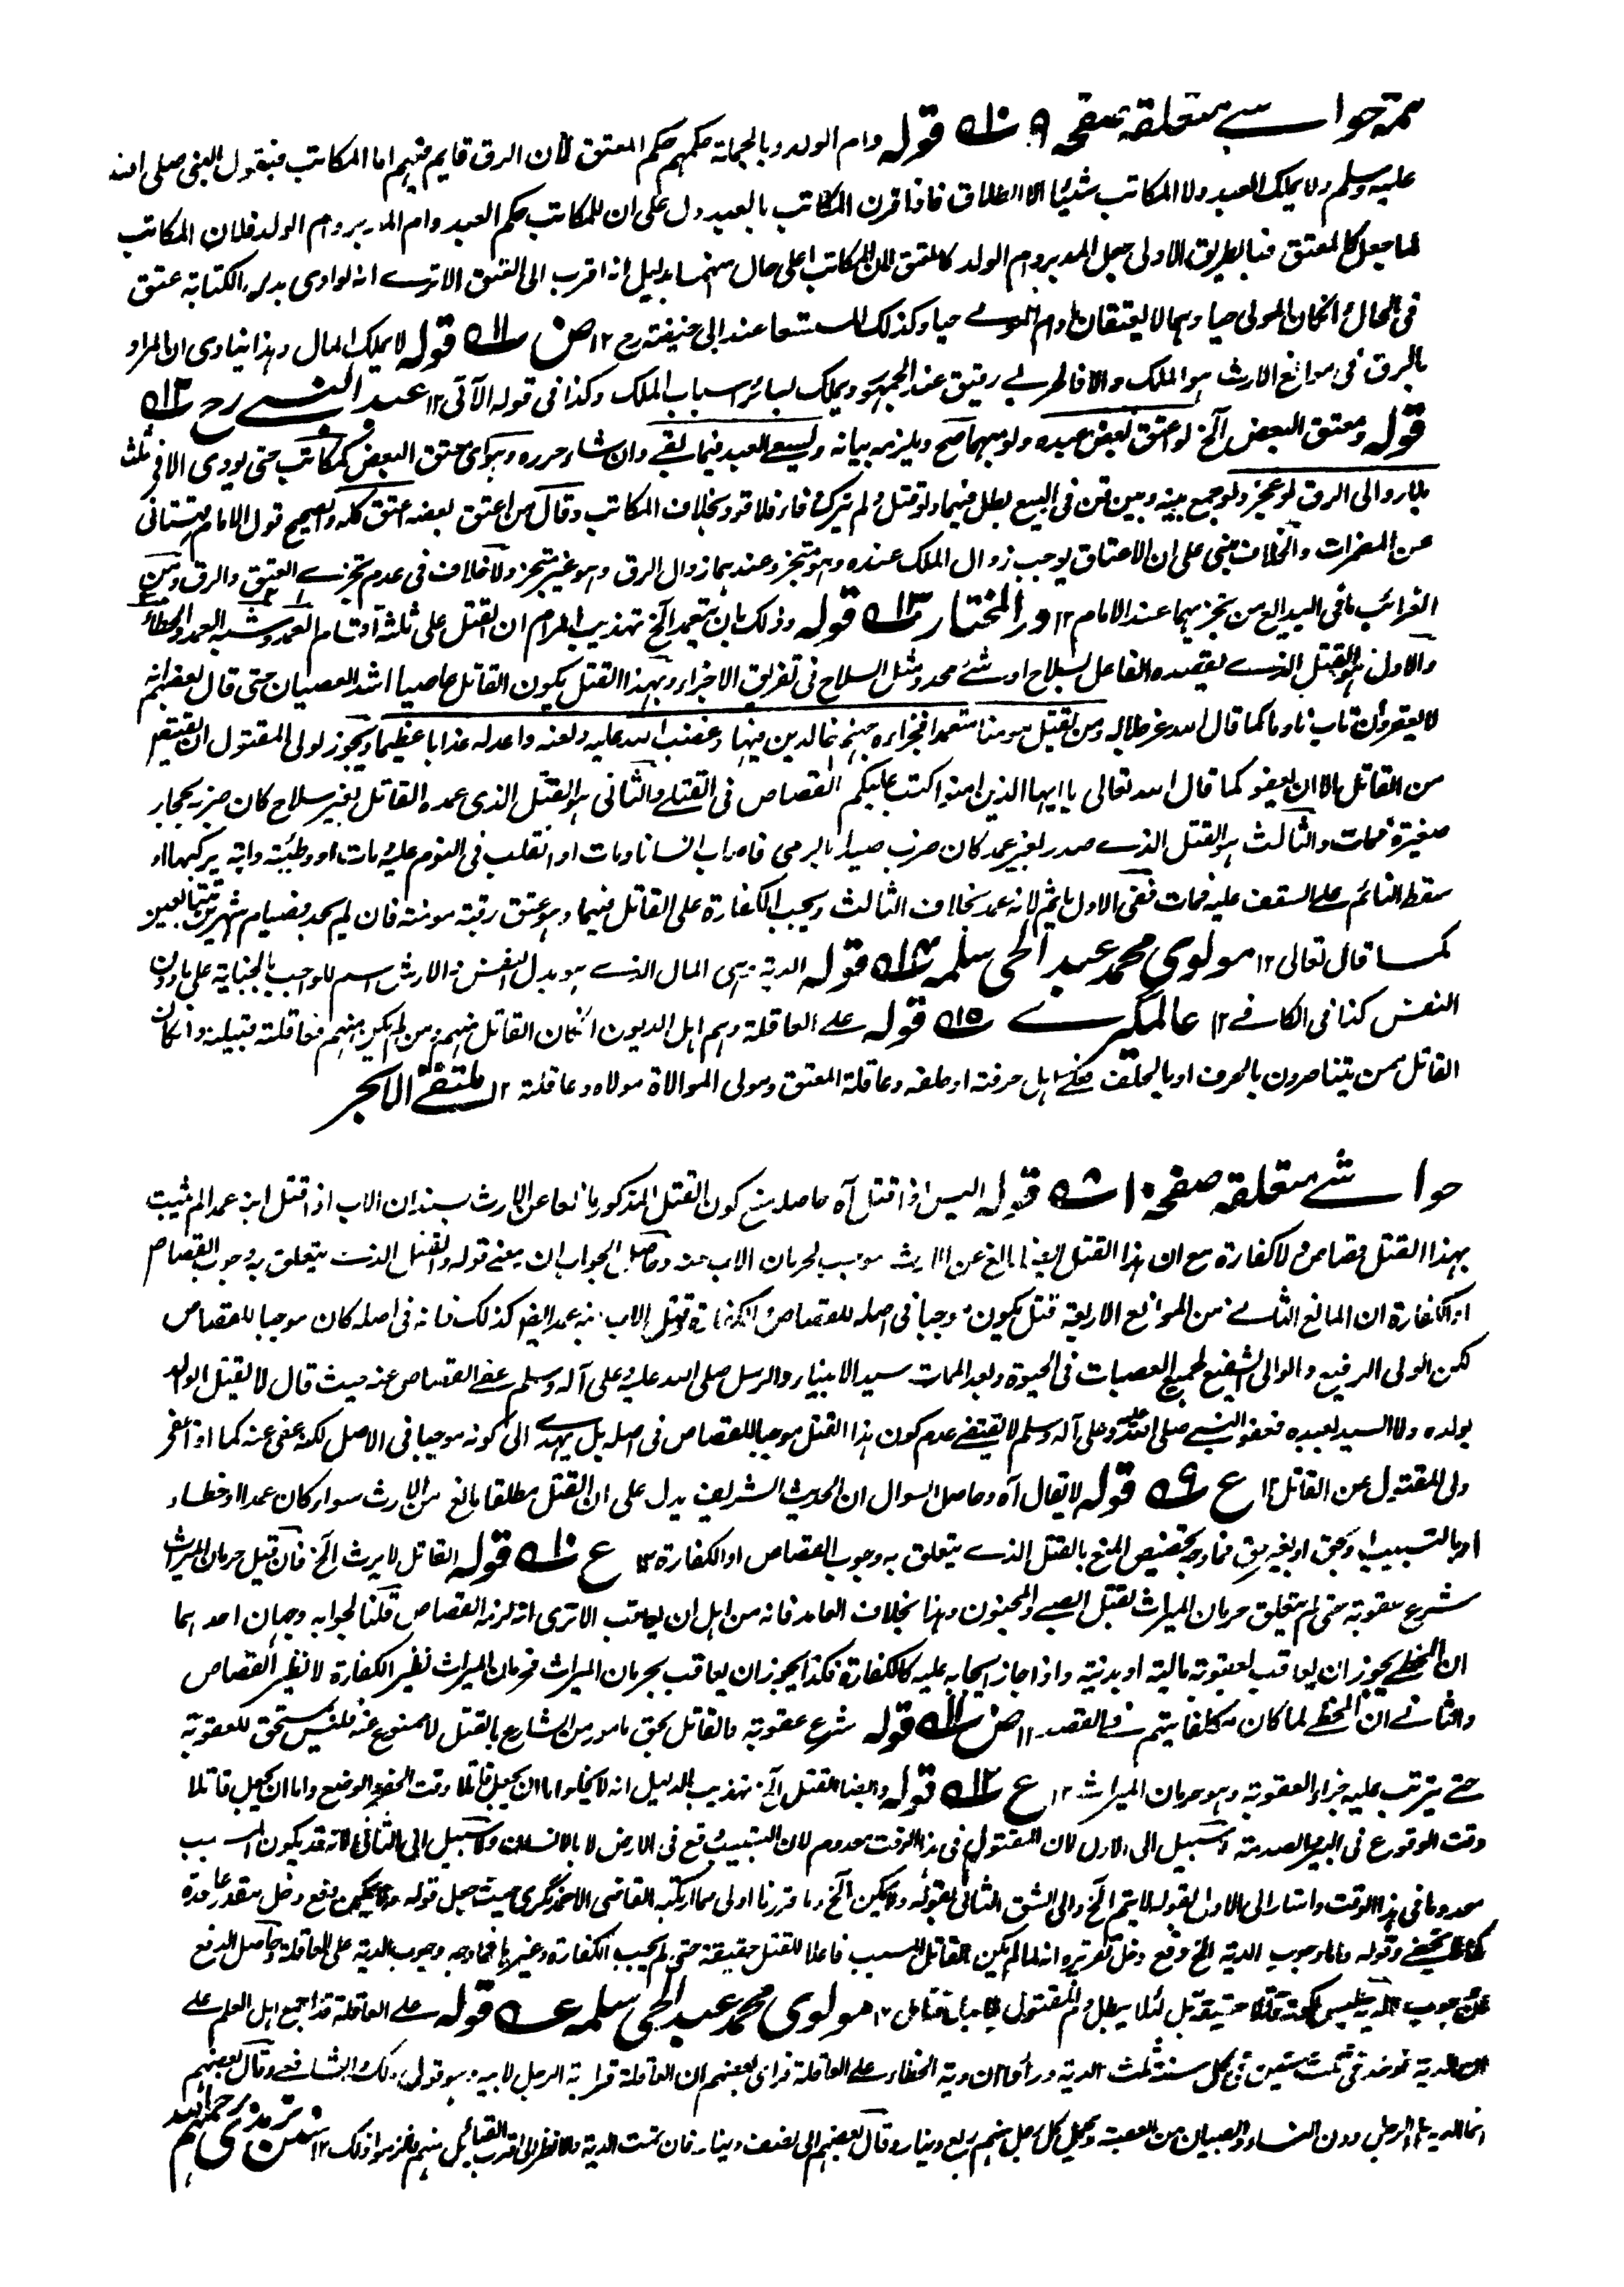 تتمة حواشے متعلقہ صفحہ ٩ ١٠ قوله وام الولد وبالجملة حكمهم حكم المعتق لان الرق قايم فيهم اما المكاتب فبقول النبى صلى الله
عليه وسلم ولا يملك العبد ولا المكاتب شيئا الا الطلاق فاذا قرن المكاتب بالعبد دل على ان للمكاتب حكم العبد واما المدبر وام الولد فلان المكاتب
لما جعل كالمعتق فبالطريق الاولى جعل المدبر وام الولد كالمعتق لان المكاتب اعلى حال منهما بدليل انه اقرب الى العتق الا ترے انه لو ادى بدل الكتابة عتق
فى الحال وان كان المولى حيا وهما لا يعتقان ما دام المولے حيا وكذلك المستسعا عند ابى حنيفة رح ١٢ ض ١١ قوله لا يملك المال وهذا ينادى ان المراد
بالرق فى موانع الارث هو الملك والا فالحربے رقيق عند الجمهور ويملك بسائر اسباب الملك وكذا فى قوله الآتى ١٢ عبد النبے رح ١٢
قوله ومعتق البعض الخ لو اعتق بعض عبده ولو مبهما صح ويلزمه بيانه ويسعے العبد فيما بقے وان شاء حرره وهو اى معتق البعض كمكاتب حتى يودى الا فى ثلث
بلا رد الى الرق لو عجز ولو جمع بينه وبين قن فى البيع بطل فيهما ولو قتل ولم يترك وفاء فلا قود بخلاف المكاتب وقالا من اعتق بعضه اعتق كله والصحيح قول الامام قهستانى
عن المضمرات والخلاف مبنى على ان الاعتاق يوجب زوال الملك عنده وهو متجز وعندهما زوال الرق وهو غير متجز ولا خلاف فى عدم تجزے العتق والرق ومن
الغرائب ما فى البدائع من تجزيهما عند الامام ١٢ در المختار ١٣ قوله وذلك بان يتعمد الخ تهذيب المرام ان القتل على ثلثة اقسام العمد وشبه العمد والخطاء
والاول هو القتل الذے يقصده الفاعل بسلاح او شئ محدد مثل السلاح فى تفريق الاجزاء وبهذا القتل يكون القاتل عاصيا اشد العصيان حتى قال بعضهم انه
لا يغفر وان تاب نادما كما قال الله عز جلاله ومن يقتل مومنا متعمدا فجزاءه جهنم خالدين فيها وغضب الله عليه ولعنه واعد له عذابا عظيما ويجوز لولى المقتول ان يقتص
من القاتل الا ان يعفو كما قال الله تعالى يا ايها الذين امنوا كتب عليكم القصاص فى القتلے والثانى هو القتل الذى عمده القاتل بغير سلاح كان ضربه بحجار
صغيرة فمات والثالث هو القتل الذے صدر بغير عمد كان ضرب صيدا بالرمى فاصاب انسانا ومات او انقلب فى النوم عليه مات او وطئته دابة يركبها او
سقط النائم على السقف عليه فمات ففى الاول ياثم لانه عمد بخلاف الثالث ويجب الكفارة على القاتل فيهما وهو عتق رقبة مومنة فان لم يجد فصيام شهرين متتابعين
كما قال تعالى ١٢ مولوى محمد عبد الحى سلمه ١٤ قوله الدية هى المال الذے هو بدل النفس والارش اسم للواجب بالجناية على ما دون
النفس كذا فى الكافے ١٢ عالمگيرے ١٥ قوله علے العاقلة وهم اهل الديون ان كان القاتل منهم ومن لم يكن منهم فعاقلته قبيلته وان كان
القاتل ممن يتناصرون بالحرف او بالحلف اهل حرفته او حلفه وعاقلة المعتق ومولى الموالاة مولاه وعاقلته ١٢ ملتقے الابحر
حواشے متعلقہ صفحہ ١٠ قوله اليس اذا قتل آه حاصله منع كون القتل المذكور مانعا عن الارث بسند ان الاب اذا قتل ابنه عمدا لم يثبت
بهذا القتل قصاص ولا كفارة مع ان هذا القتل ايضا مانع عن الارث موجب لحرمان الاب عنه وحاصل الجواب ان معنے قوله والقتل الذے يتعلق به وجوب القصاص
او الكفارة ان المانع الثانے من الموانع الاربعة قتل يكون موجبا فى اصله للقصاص او الكفارة وقتل الاب ابنه عمدا ايضا كذلك فانه فى اصله كان موجبا للقصاص
لكن المولى الرفيع والوالى الشفيع لجميع العصيات فى الحيوة وبعد الممات سيد الانبياء والرسل صلى الله عليه وعلى آله وسلم عفے القصاص عنه حيث قال لا يقتل الوالد
بولده ولا السيد بعبده فعفو النبے صلى الله عليه وعلى آله وسلم لا يقتضے عدم كون هذا القتل موجبا للقصاص فى اصله بل يهدے الى كونه موجبا فى الاصل لكنه عفى عنه كما اذا عفى
ولى المقتول عن القاتل ١٢ ع ٩ قوله لا يقال آه وحاصل السوال ان الحديث الشريف يدل على ان القتل مطلقا مانع من الارث سواء كان عمدا او خطاء
او بالتسبيب او بحق او بغير حق فما وجه تخصيص المنع بالقتل الذے يتعلق به وجوب القصاص او الكفارة ١٢ ع ١٠ قوله القاتل لا يرث الخ فان قيل حرمان الميراث
شرع عقوبة حتى لم يتعلق حرمان الميراث بقتل الصبے والمجنون وهذا بخلاف العامد فانه من اهل ان يعاقب الا ترى انه لزمه القصاص قلنا لجوابه وجهان احدهما
ان المخطے يجوز ان يعاقب بعقوبة مالية او بدنية واذا جاز ايجابه عليه كالكفارة فكذا يجوز ان يعاقب بحرمان الميراث فحرمان الميراث نظير الكفارة لا نظير القصاص
والثانے ان المخطے لما كان مكلفا يتهم فے القصد ١٢ ض ١١ قوله شرع عقوبة فالقاتل بحق مامور من الشارع بالقتل لا ممنوع عنه فليس مستحق للعقوبة
حتے يترتب عليه جزاء العقوبة وهو حرمان الميراث ١٢ ع ١٢ قوله وايضا القتل الخ تهذيب الدليل انه لا يخلوا اما ان يجعل قاتلا وقت الحفر والوضع واما ان يجعل قاتلا
وقت الوقوع فى البير والصدمة لا سبيل الى الاول لان المقتول فى هذا الوقت معدوم لان التسبيب وقع فى الارض لا بالانسان ولا سبيل الى الثانى لانه قد يكون المسبب
معدوما فى هذا الوقت واشار الى الاول بقوله لا يتم الخ والى الشق الثانى بقوله ولا يمكن الخ وما قررنا اولى مما ارتكبه القاضى الاحمد نگرى حيث جعل قوله ولا يمكن دفع دخل مقدر
وقوله واما وجوب الدية الخ دفع دخل تقريره انه لما لم يكن القاتل المسبب فاعلا للقتل حقيقة حتى لم يجب الكفارة وغيرها فما وجه وجوب الدية على العاقلة وحاصل الدفع
ان وجوب الدية ليس لكونه قاتلا حقيقة بل لئلا يبطل دم المقتول ١٢ مولوى محمد عبد الحى سلمه قوله علے العاقلة قد اجمع اهل العلم علے
ان الدية توخذ فى ثلث سنين فى كل سنة ثلث الدية وراوا ان دية الخطاء علے العاقلة فراى بعضهم ان العاقلة قرابة الرجل لابيه وهو قول مالك والشافعے وقال بعضهم
انما الدية على الرجال دون النساء والصبيان من العصبة ويحمل كل رجل منهم ربع دينار وقال بعضهم الى نصف دينار فان تمت الدية والا نظر الى اقرب القبائل منهم فالزموا ذلك ١٢ سنن ترمذى رحمه الله